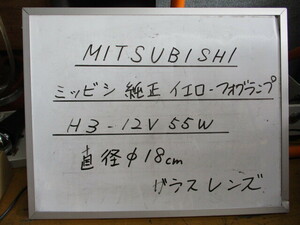 MITSUBISHI
ミッビシ 純正 イエローフォグランプ
H3-12V 55W
直径φ18cm
ガラスレンズ